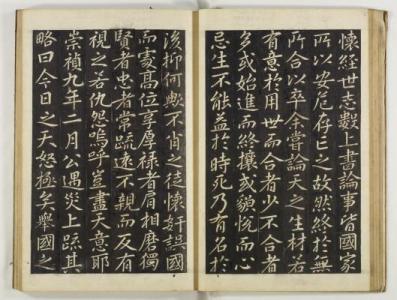 懷經世志數上書論事皆國家
所以安危存亡之故然終於無
所合以卒余嘗論天之生材若
有意於用世而合者少不合者
多或始進而終擯或貌悅而心
忌生不能益於時死乃有名於
後抑何歟不肖之徒懷奸誤國
而處高位享厚祿者肩相磨獨
賢者忠者常疏遠不親而反有
視之若仇然嗚呼豈盡天意耶
崇禎九年二月公遇災上疏其
略曰今日之天怒極矣舉國之